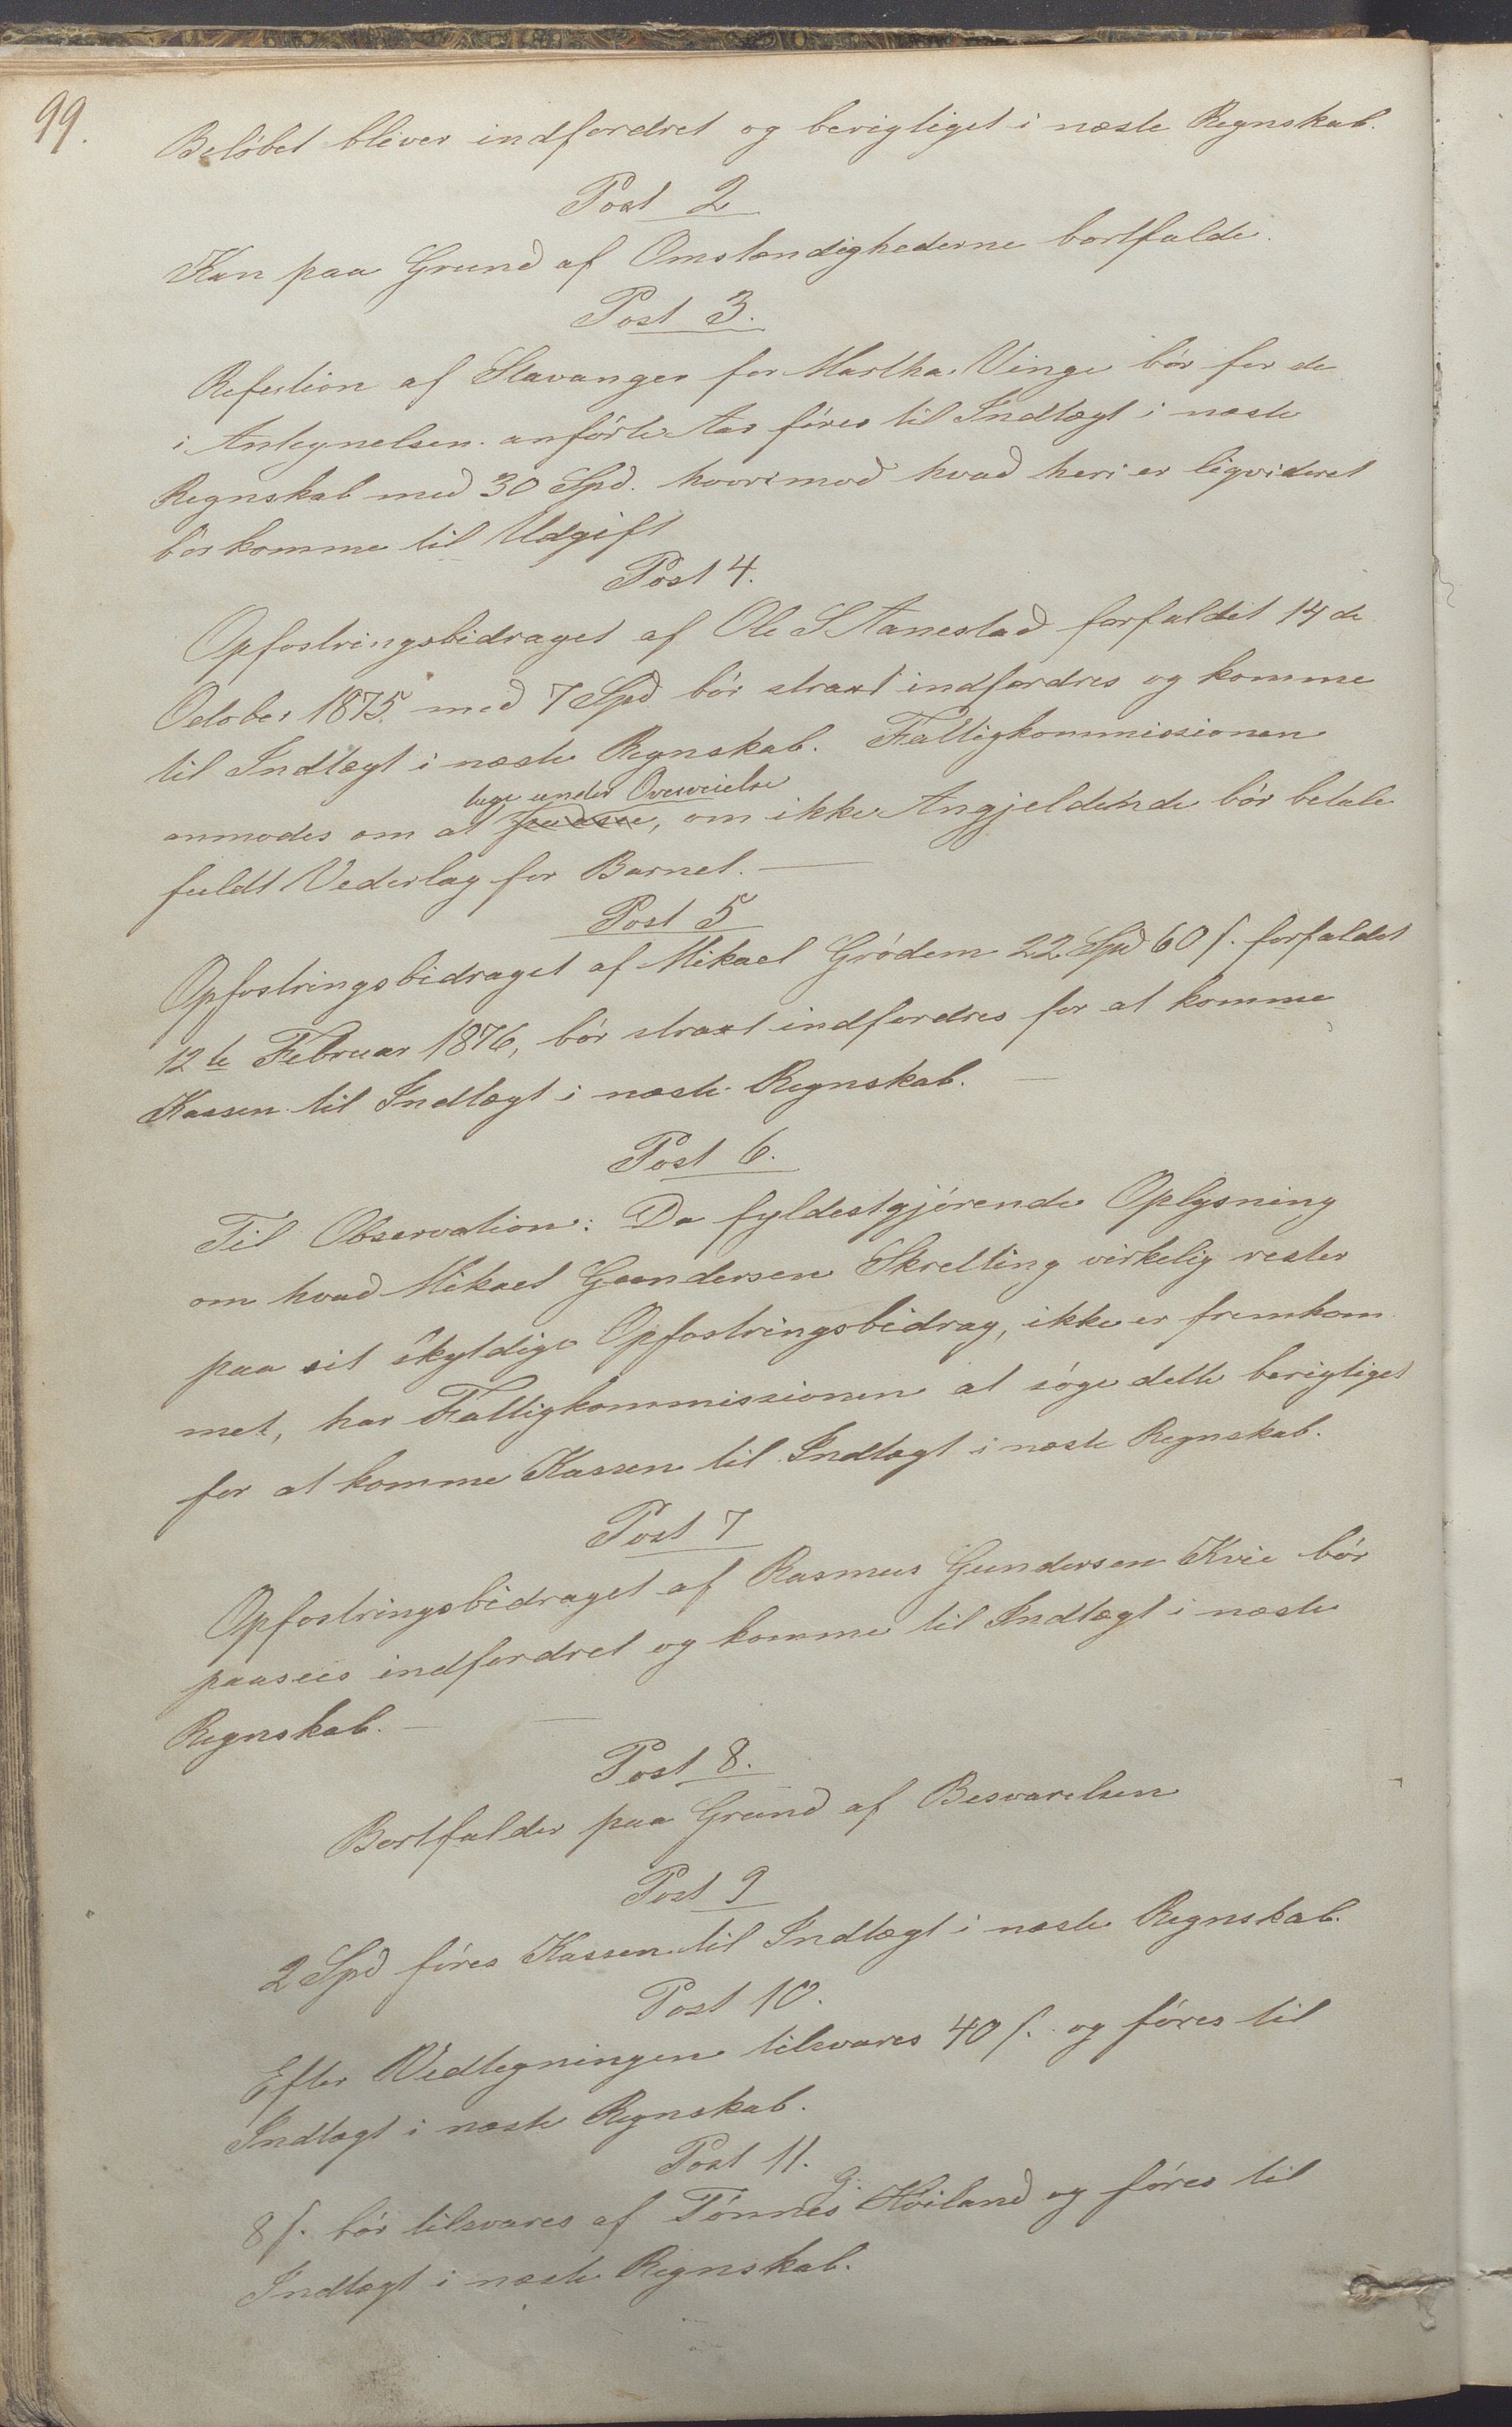 99.
Beløbet bliver indfordret og berigtiget i næste Regnskab.
Post 2
Kan paa Grund af Omstændighederne bortfalde.
Post 3.
Refusion af Stavanger for Martha Vinge bör for de
i Antegnelsen anförte Aar föres til Indtægt i næste
Regnskab med 30 Spd. hvorimod hvad heri er liqvideret
bör komme til Udgift
Post 4.
Opfostringsbidraget af Ole S Aanestad forfaldet 14de
October 1875. med 7 Spd bör straxt indfordres og komme
til Indtægt i næste Regnskab. Fattigkommissionen
tage under Overveielse
anmodes om at , om ikke Angjeldende bör betale
fuldt Vederlag for Barnet. —
Post 5
Opfostringsbidraget af Mikael Grödem 22 Spd 60 s. forfaldet
12te Februar 1876, bör straxt indfordres for at komme
Kassen til Indtægt i næste Regnskab. —
Post 6.
Til Observation: Da fyldestgjörende Oplysning
om hvad Mikael Gundersen Skretting virkelig rester
paa sit skyldige Opfostringsbidrag, ikke er fremkom
met, har Fattigkommissionen at söge dette berigtiget
for at komme Kassen til Indtægt i næste Regnskab.
Post 7
Opfostringsbidraget af Rasmus Gundersen Kvie bör
paasees indfordret og komme til Indtægt i næste
Regnskab. — —
Post 8.
Bortfalder paa Grund af Besvarelsen
Post 9
2 Spd föres Kassen til Indtægt i næste Regnskab.
Post 10.
Efter Vedtegningen tilsvares 40 s. og föres til
Indtægt i næste Regnskab.
Post 11.
8 s. bör tilsvares af Tönnes G. Höiland og föres til
Indtægt i næste Regnskab.